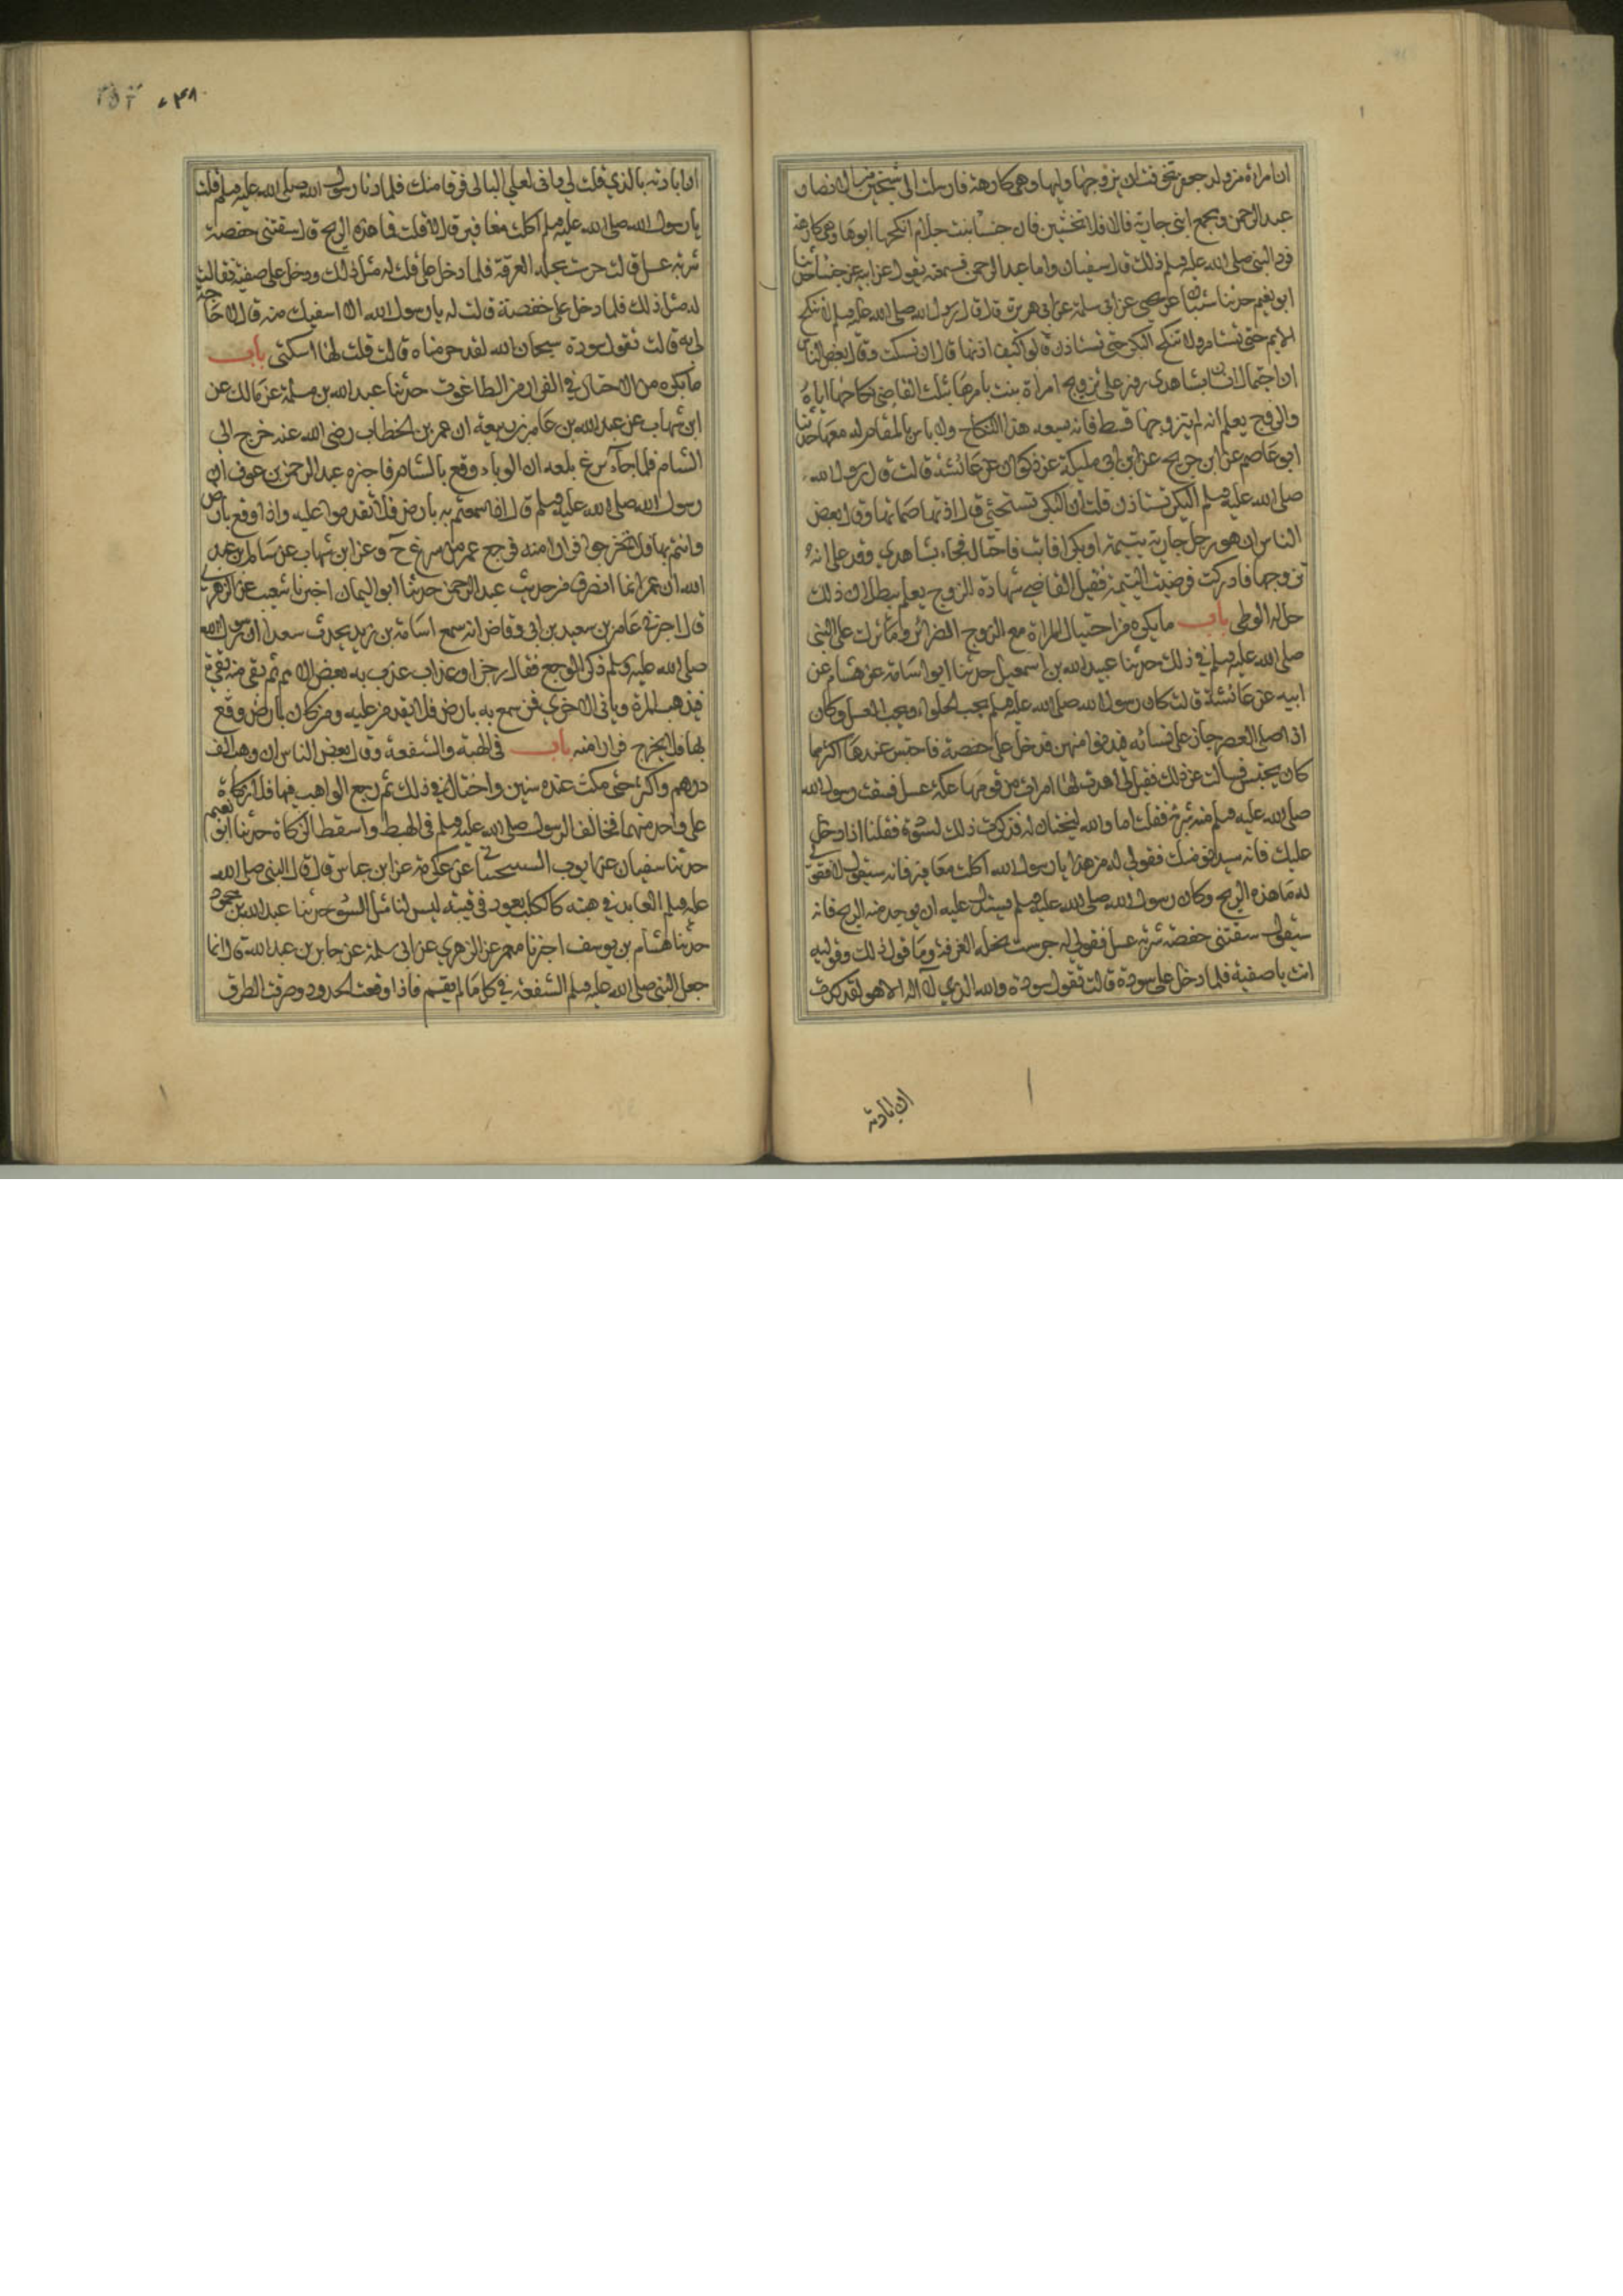 ان امراة من ولد جعفر تخوفت ان يزوجها وليها وهي كارهة فارسلت الى شيخين من الانصار
عبد الرحمن ومجمع ابنى جارية قالا فلا تخشين فان خنسا بنت خدام انكحها ابوها وهي كارهة
فرد النبي صلى الله عليه وسلم ذلك قال سفيان واما عبد الرحمن فسمعته يقول عن ابيه عن خنسا حدثنا
ابو نعيم حدثنا شيبان عن يحيى عن ابي سلمة عن ابي هريرة قال قال رسول الله صلى الله عليه وسلم لا تنكح
الايم حتى تستامر ولا تنكح البكر حتى تستاذن قالوا كيف اذنها قال ان تسكت وقال بعض الناس
ان احتال انسان بشاهدي زور على تزويج امراة بنت بامرها فاثبت القاضي نكاحها اياه
والزوج يعلم انه لم يتزوجها قط فانه يسعه هذا النكاح ولا باس بالمقام له معها حدثنا
ابو عاصم عن ابن جريج عن ابن ابي مليكة عن ذكوان عن عائشة قالت قال رسول الله
صلى الله عليه وسلم البكر تستاذن قلت ان البكر تستحيي قال اذنها صماتها وقال بعض
الناس ان هو رجل جارية يتيمة او بكرا فابت فاحتال فجاء بشاهدي وقد على انه
تزوجها فادركت فرضيت اليتيمة فقبل القاضي شهادة الزوج يعلم ببطلان ذلك
حل له الوطي باب ما يكره من احتيال المراة مع الزوج الضرائر وما نزلت على النبي
صلى الله عليه وسلم في ذلك حدثنا عبيد الله بن اسمعيل حدثنا ابو اسامة عن هشام عن
ابيه عن عائشة قالت كان رسول الله صلى الله عليه وسلم يحب الحلواء ويحب العسل وكان
اذا صلى العصر جاز على نسائه فيدنوا منهن فدخل على حفصة فاحتبس عندها اكثر مما
كان يحتبس فسالت عن ذلك فقيل لي اهدت لها امراة من قومها عكة عسل فسقت رسول الله
صلى الله عليه وسلم منه شربة فقلت اما والله لنحتالن له فذكرت ذلك لسودة فقلنا اذا دخل
عليك فانه سيدنو منك فقولي له من هذا يا رسول الله اكلت مغافير فانه سيقول لا فقولي
له ما هذه الريح وكان رسول الله صلى الله عليه وسلم يشتد عليه ان يوجد منه الريح فانه
سيقول سقتني حفصة شربة عسل فقولي له جرست نحله العرفة وما قول لك وقوليه
انت يا صفية فلما دخل على سودة قالت تقول سودة والله الذي لا اله الا هو لقد كدت
ان ابادته
٣٨
ان ابادته بالذي قلت لي واني لعلى الباب فرقا منك فلما دنا رسول الله صلى الله عليه وسلم قلت
يا رسول الله صلى الله عليه وسلم اكلت مغافير قال لا قلت فما هذه الريح قال سقتني حفصة
شربة عسل قالت جرست نحله العرفة فلما دخل علي قلت له مثل ذلك ودخل على صفية فقالت
له مثل ذلك فلما دخل على حفصة قالت له يا رسول الله الا اسقيك منه قال لا حاجة
لي به قالت تقول سودة سبحان الله لقد حرمناه قالت قلت لها اسكتي باب
ما يكره من الاحتيال في الفرار من الطاعون حدثنا عبد الله بن مسلمة عن مالك عن
ابن شهاب عن عبد الله بن عامر بن ربيعة ان عمر بن الخطاب رضي الله عنه خرج الى
الشام فلما جاء سرغ بلغه ان الوباء وقع بالشام فاخبره عبد الرحمن بن عوف ان
رسول الله صلى الله عليه وسلم قال اذا سمعتم به بارض فلا تقدموا عليه واذا وقع بارض
وانتم بها فلا تخرجوا فرارا منه فرجع عمر من سرغ ح وعن ابن شهاب عن سالم بن عبد
الله ان عمر انما انصرف من حديث عبد الرحمن حدثنا ابو اليمان اخبرنا شعيب عن الزهري
قال اخبرني عامر بن سعيد بن ابي وقاص انه سمع اسامة بن زيد يحدث سعدا ان رسول الله
صلى الله عليه وسلم ذكر الوجع فقال رجز او عذاب عذب به بعض الامم ثم بقي منه بقية
فيذهب المرة وياتي الاخرى فمن سمع به بارض فلا يقدم عليه ومن كان بارض وقع
بها فلا يخرج فرارا منه باب في الهبة والشفعة وقال بعض الناس ان وهب الف
درهم واكثر حتى مكث عنده سنين واحتال في ذلك ثم رجع الواهب فيها فلا زكاة
على واحد منهما فخالف الرسول صلى الله عليه وسلم في الهبة واسقط الزكاة حدثنا ابو نعيم
حدثنا سفيان عن ايوب السختياني عن عكرمة عن ابن عباس قال قال النبي صلى الله
عليه وسلم العايد في هبته كالكلب يعود في قيئه ليس لنا مثل السوء حدثنا عبد الله بن محمد
حدثنا هشام بن يوسف اخبرنا معمر عن الزهري عن ابي سلمة عن جابر بن عبد الله قال انما
جعل النبي صلى الله عليه وسلم الشفعة في كل ما لم يقسم فاذا وقعت الحدود وصرفت الطرق